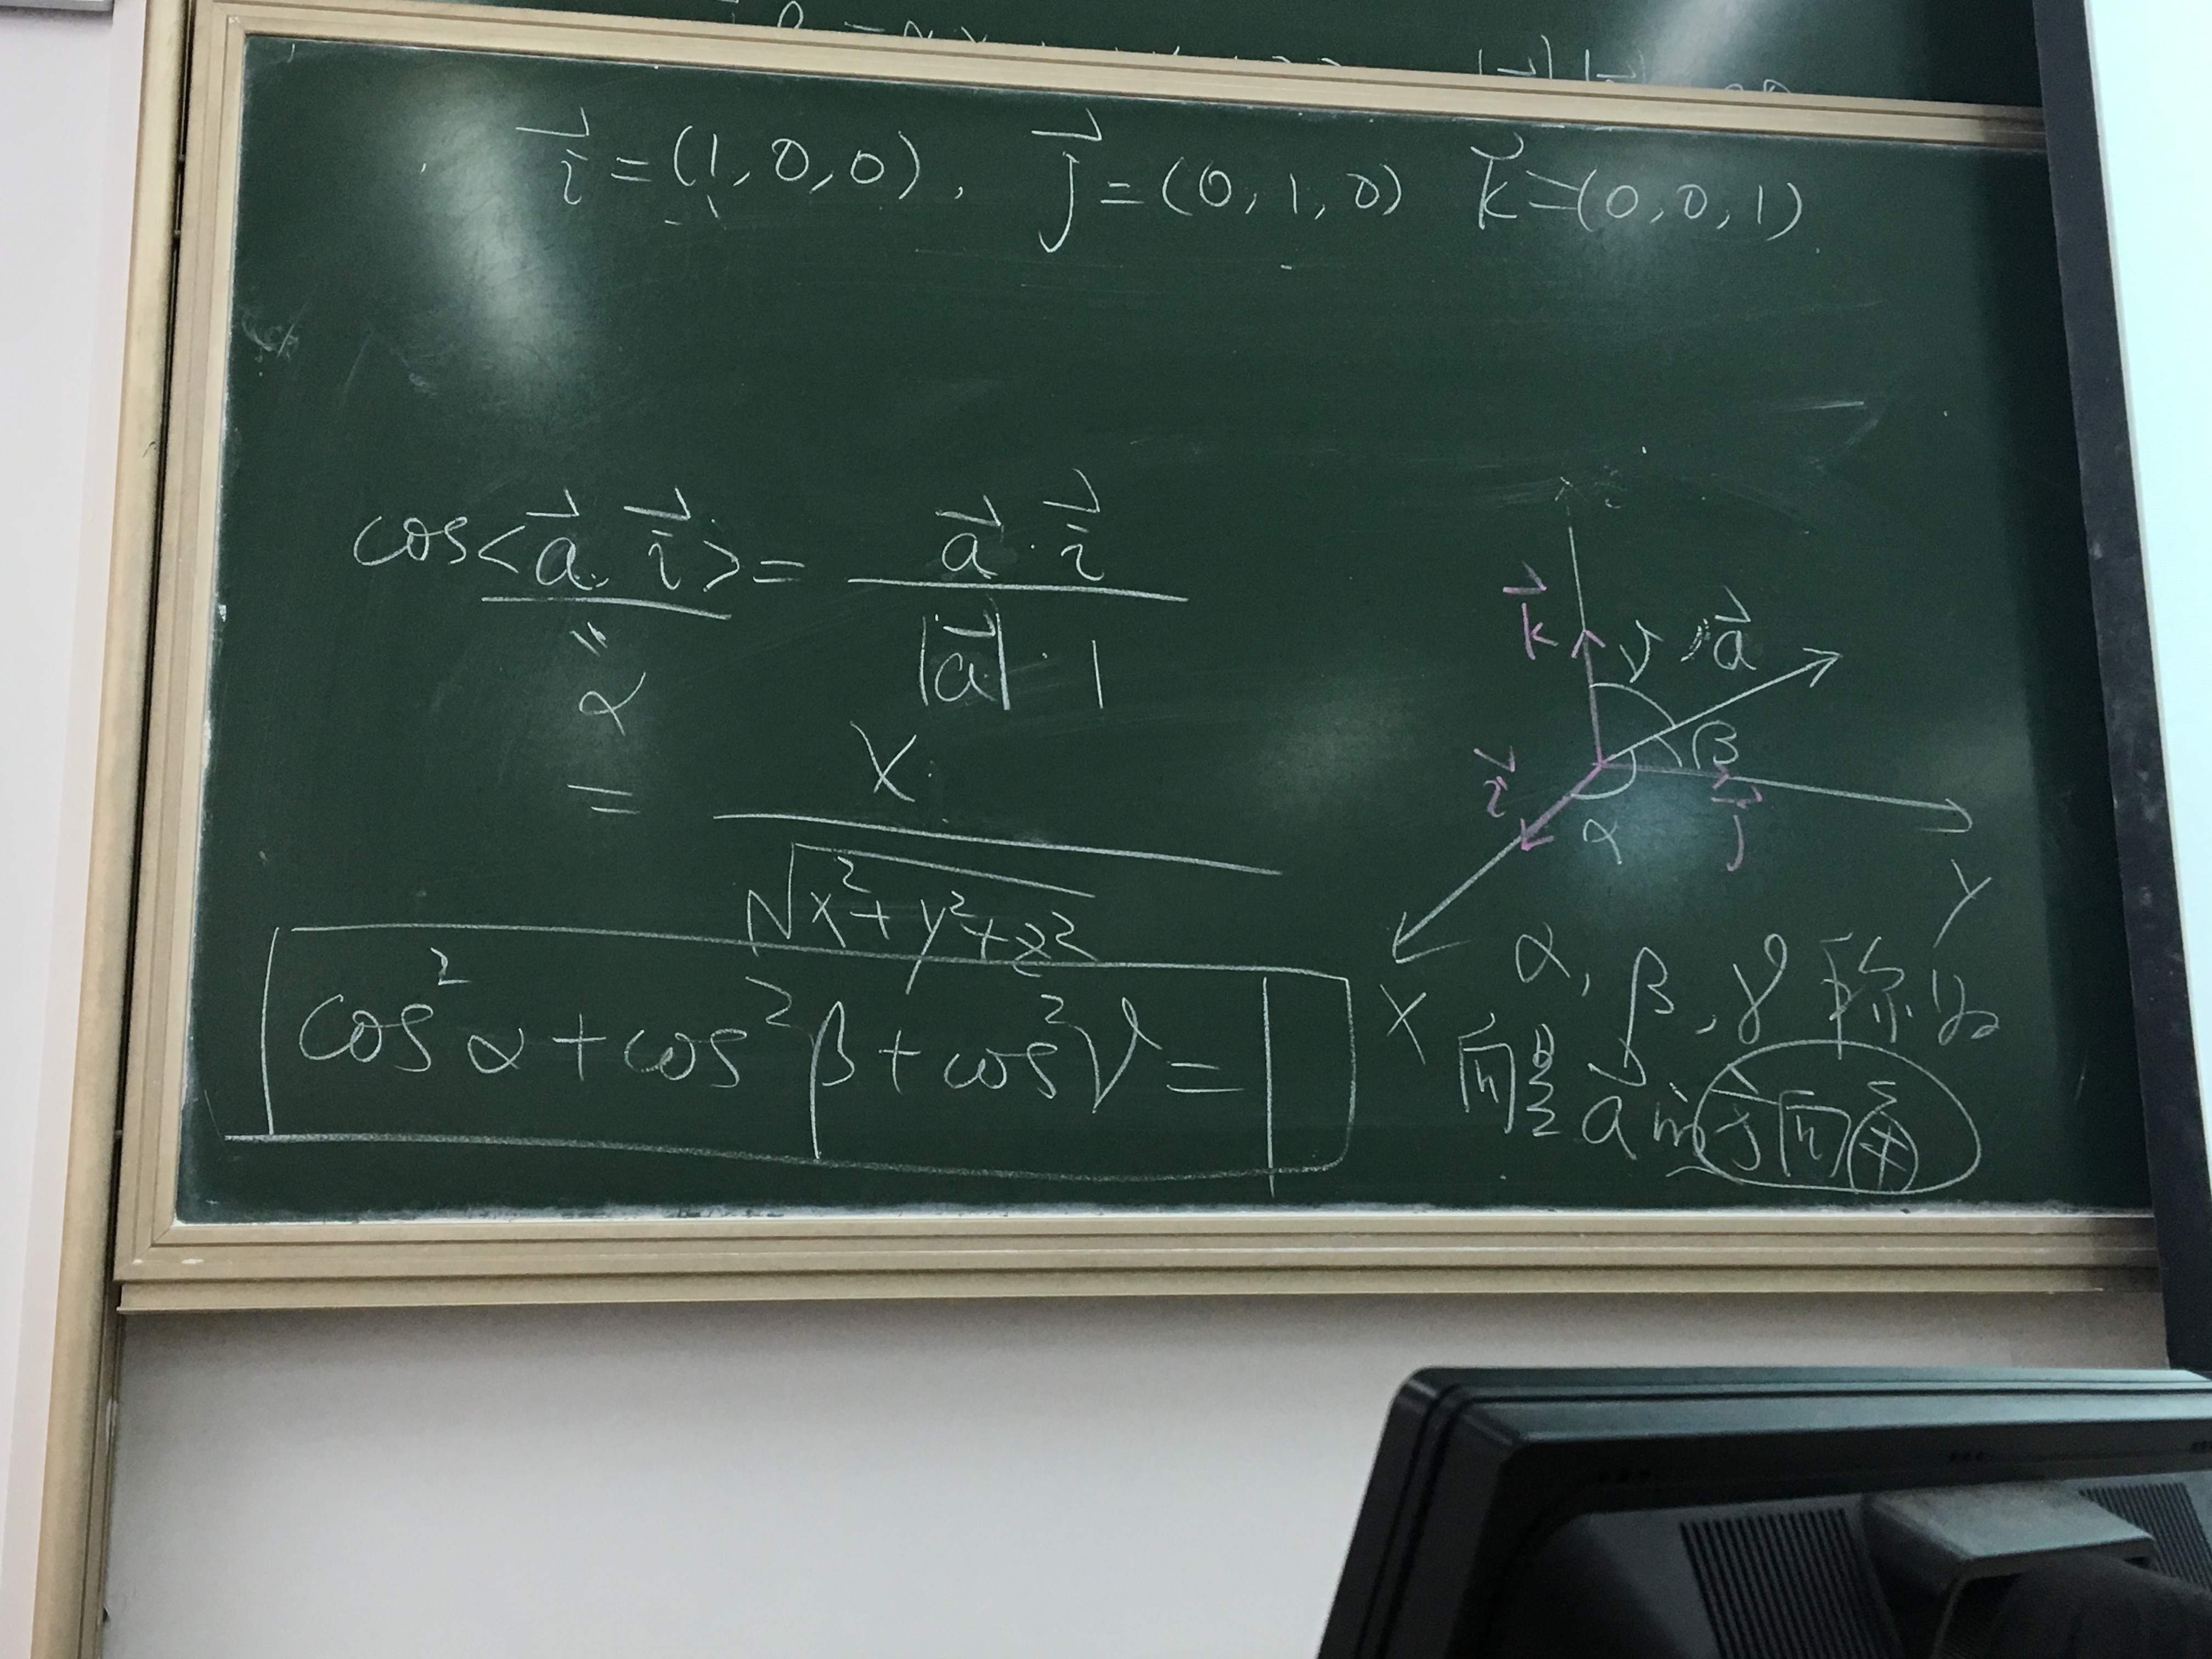 i⃗=(1,0,0), j⃗=(0,1,0) k⃗=(0,0,1)
cos<a⃗, i⃗>= a⃗·i⃗
|a⃗|·1
"
α
= x
√x²+y²+z²
cos²α+cos²β+cos²γ=1
z
k⃗ γ a⃗
β
i⃗ α j⃗
y
x
α, β, γ 称为
向量a⃗的方向角